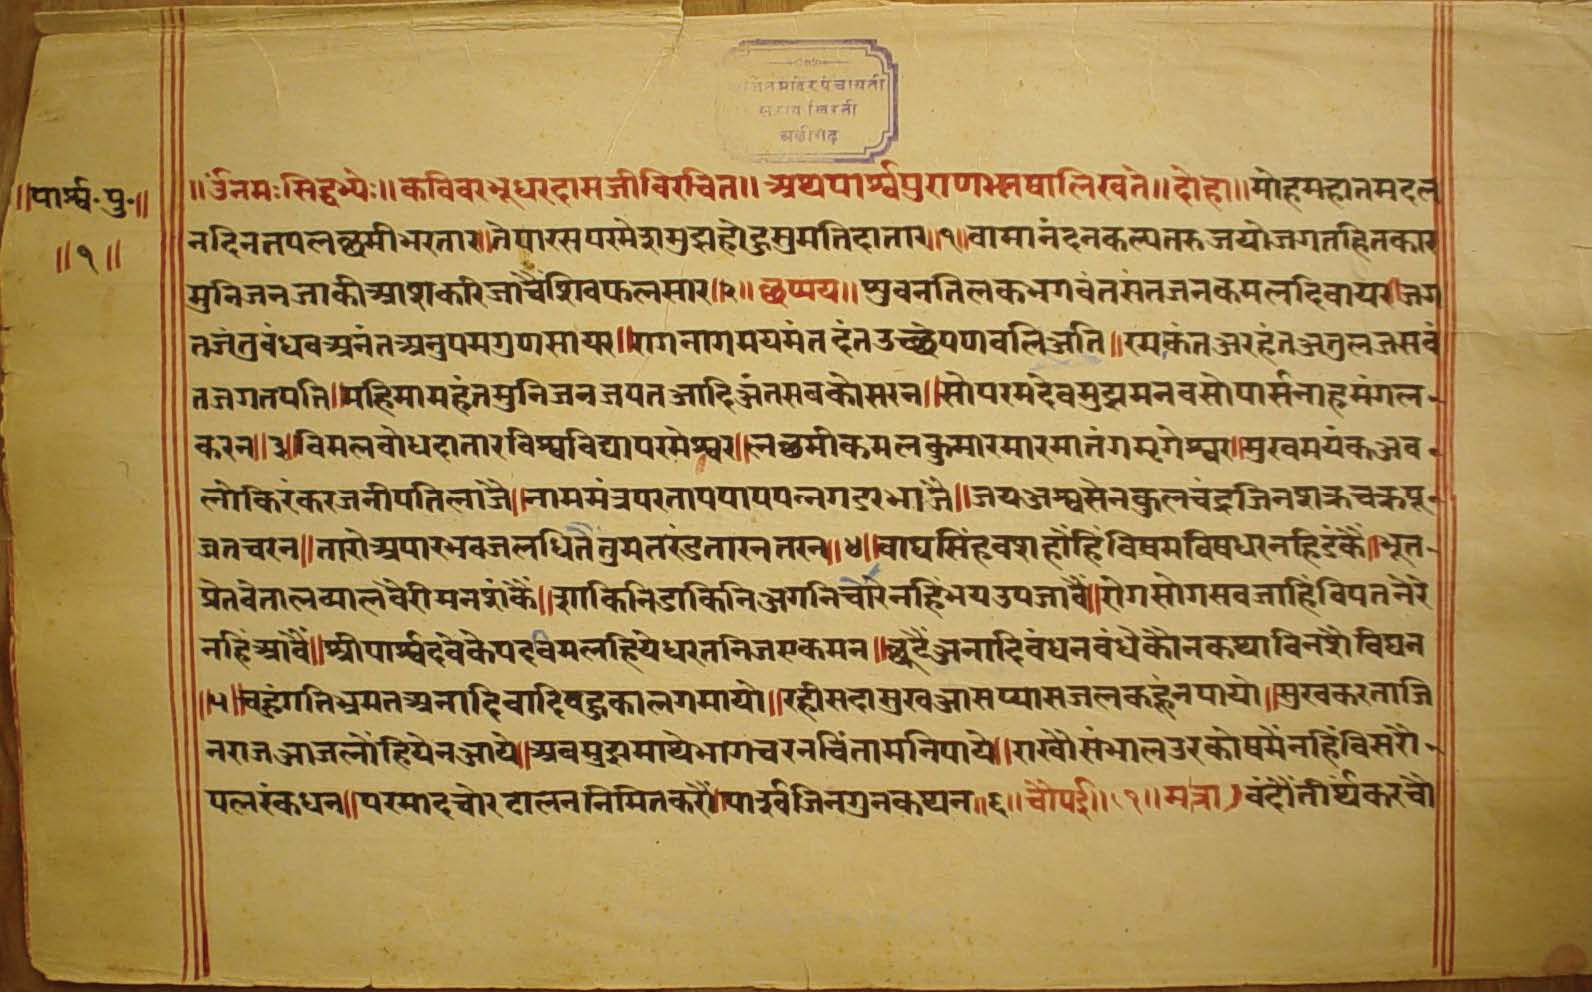 जैनमंदिर पंचायती
सराय खिरनी
अलीगढ़
॥पार्श्व॰पु॰॥
॥१॥
॥ॐनमःसिद्धेभ्यः॥कविवरभूधरदासजीविरचित॥अथपार्श्वपुराणभाषालिख्यते॥दोहा॥मोहमहातमदल
नदिनतपलछमीभरतार॥तेपारसपरमेशमुझहोहुसुमतिदातार॥१॥वामानंदनकल्पतरुजयोजगतहितकार
मुनिजनजाकीआशकरिजाचैंशिवफलसार॥२॥छप्पय॥भुवनतिलकभगवंतसंतजनकमलदिवायर॥जग
तजंतुबंधवअनंतअनुपमगुणसायर॥रागनागमयमंतदंतउच्छेपणवलिअति॥रमाकंतअरहंतअतुलजसवं
तजगतपति॥महिमामहंतमुनिजनजपतआदिअंतसबकोसरन॥सोपरमदेवमुझमनवसोपार्सनाहमंगल
करन॥३॥विमलवोधदातारविश्वविद्यापरमेश्वर॥लछमीकमलकुमारमारमातंगमृगेश्वर॥मुखमयंकअव
लोकिरंकरजनीपतिलाजै॥नाममंत्रपरतापपापपन्नगडरभाजै॥जयअश्वसेनकुलचंद्रजिनशक्रचक्रपू
जतचरन॥तारोअपारभवजलधितैंतुमतरंडतारनतरन॥४॥वाघसिंहवशहोंहिंविषमविषधरनहिडंकैं॥भूत
प्रेतवेतालव्यालवैरीमनशंकैं॥शाकिनिडाकिनिअगनिचोरनहिंभयउपजावैं॥रोगसोगसवजाहिंविपतनेरे
नहिंआवैं॥श्रीपार्श्वदेवकेपदकमलहियेधरतनिजएकमन॥छूटैंअनादिवंधनवंधेकौनकथाविनशैविघन
॥५॥चहुंगतिभ्रमतअनादिवादिवहुकालगमायो॥रहीसदासुखआसप्यासजलकहूंनपायो॥सुखकरताजि
नराजआजलोंहियेनआये॥अवमुझमाथेभागचरनचिंतामनिपाये॥राखौसंभालउरकोषमैंनहिंविसरौं
पलरंकधन॥परमादचोरटालननिमितकरौंपार्श्वजिनगुनकथन॥६॥चौपई॥(१५मात्रा)वंदौंतीर्थंकरचौ